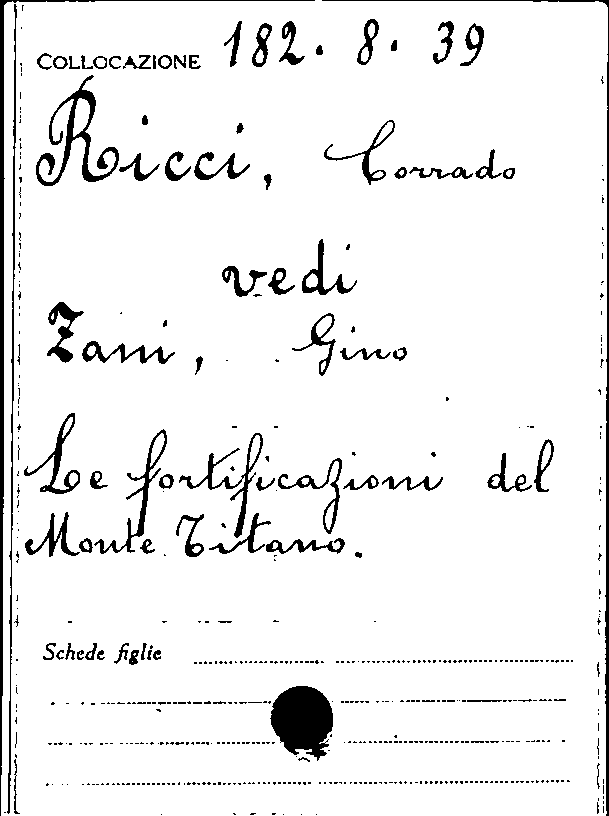 COLLOCAZIONE 182. 8. 39
Ricci, Corrado
vedi
Zani, Gino
Le fortificazioni del
Monte Titano.
Schede figlie